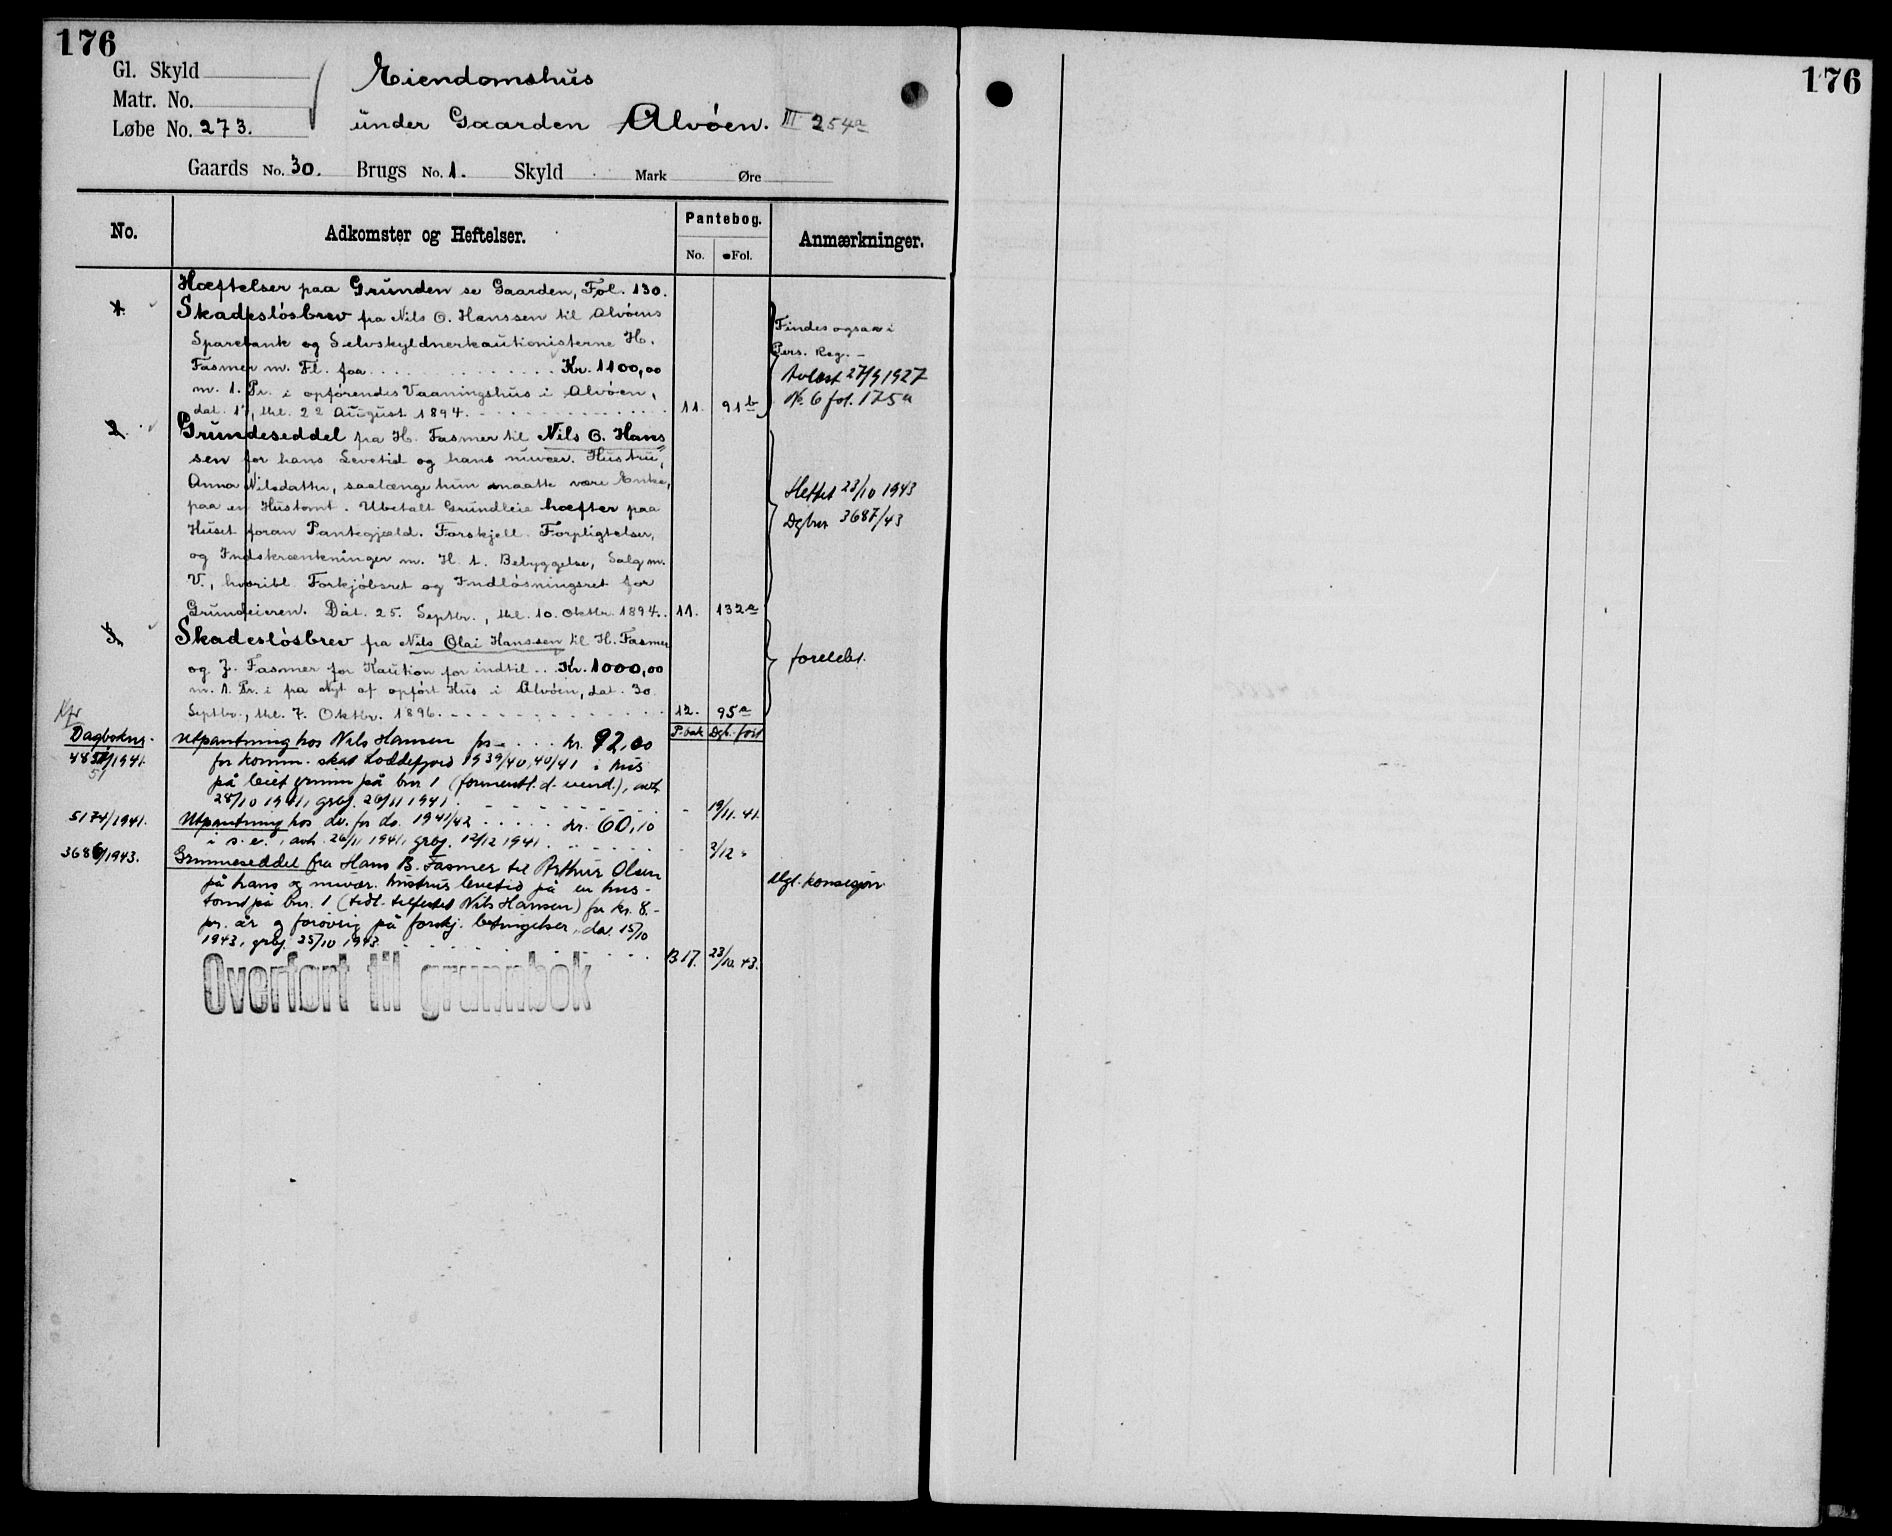 176
Gl. Skyld
Matr. No.
Løbe No. 273.
Eiendomshus
under Gaarden Alvøen. III 254a
Gaards No. 30. Brugs No. 1. Skyld Mark Øre
No. Adkomster og Heftelser. Pantebog. Anmærkninger.
No. Fol.
Hæftelser paa Grunden se Gaarden, Fol. 130.
1. Skadesløsbrev fra Nils O. Hanssen til Alvøens
Sparebank og Selvskyldnerkautionisterne H.
Fasmer m. Fl. paa . . . Kr. 1100,00
m. 1. Pr. i opførendes Vaaningshus i Alvøen,
dat. 17, thl. 22 August 1894. 11. 91b
Findes ogsaa i
Pers. Reg. –
Avlæst 27/9 1927
No. 6 fol. 175a
2. Grundeseddel fra H. Fasmer til Nils O. Hans
sen for hans Levetid og hans nuvær. Hustru,
Anna Nilsdatter, saalænge hun maatte være Enke,
paa en Hustomt. Ubetalt Grundleie hæfter paa
Huset foran Pantegjæld. Forskjell. Forpligtelser,
og Indskrænkninger m. H. t. Bebyggelse, Salg m.
V., hvoribl. Forkjøbsret og Indløsningsret for
Grundeieren. Dat. 25. Septbr., thl. 10. Oktbr. 1894. 11. 132a
Slettet 23/10 1943
Dgbnr 3687/43
3. Skadesløsbrev fra Nils Olai Hanssen til H. Fasmer
og J. Fasmer for Kaution for indtil . . Kr. 1000,00
m. 1. Pr. i fra Nyt af opført Hus i Alvøen, dat. 30.
Septbr., thl. 7. Oktbr. 1896. 12. 95a
foreldet.
Dagboknr. P.bok Dgb. ført
485/1941 Utpantning hos Nils Hansen for . . . kr. 92,00
for komm. skat Loddefjord 1939/40, 40/41 i hus
på leiet grunn på bnr 1
28/10 1941, grbf. 26/11 1941. - 19/11. 41.
5174/1941. Utpantning hos do. for do. 1941/42 . . . kr. 60,10
i s. e., avh. 26/11 1941, grbf. 12/12 1941. - 3/12 "
3686/1943. Grunneseddel fra Hans B. Fasmer til Arthur Olsen
på hans og nuvær. hustrus levetid på en hus-
tomt på bnr. 1 (tidl. tilfestet Nils Hansen) for kr. 8.-
pr. år og forøvrig på forskj. betingelser, dat. 15/10
1943, grbf. 25/10 1943 B 17. 23/10. 43.
Overført til grunnbok
176